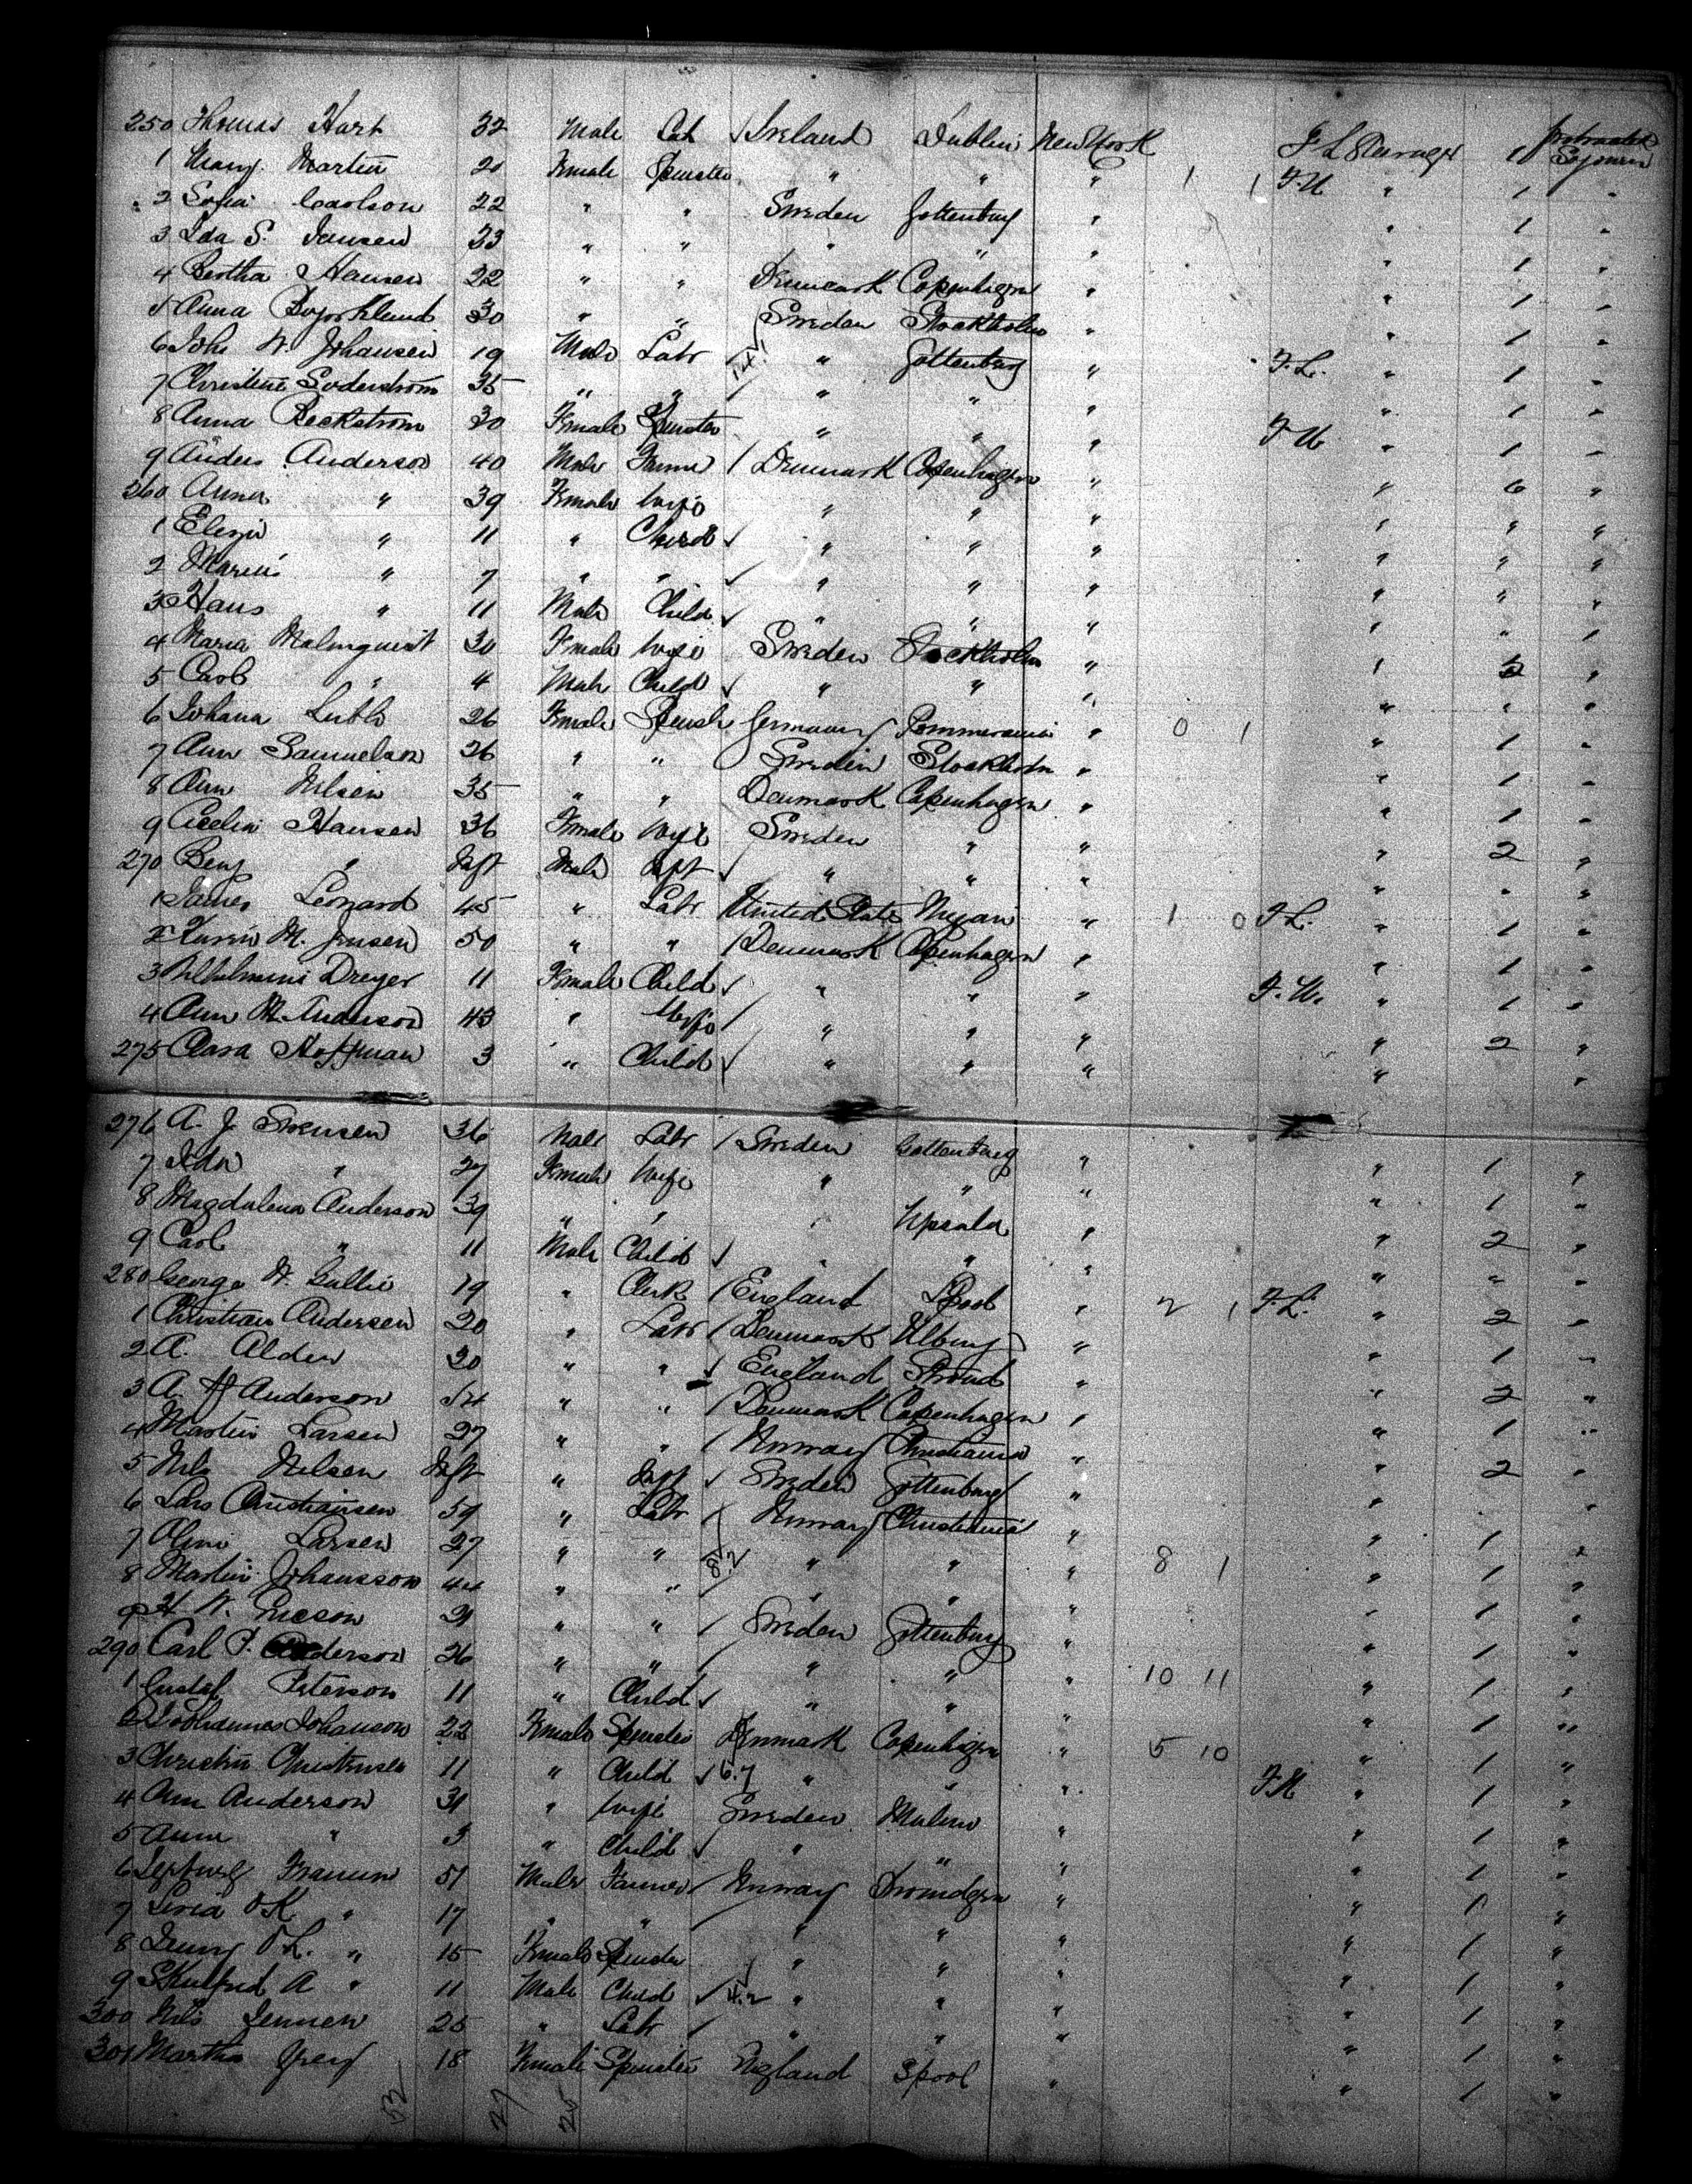 250 Thomas Hart 32 Male Lab Ireland Dublin New York F L Steerage 1 Protracted Sojourn
1 Mary Martin 20 Female Spinster " " " 1 1 F.U " 1 "
2 Sofia Carlson 22 " " Sweden Gottenburg " " 1 "
3 Ida S. Jansen 23 " " " " " " 1 "
4 Bertha Hansen 22 " " Denmark Copenhagen " " 1 "
5 Anna Bjorklund 30 " " Sweden Stockholm " " 1 "
6 Joh W. Johansen 19 Male Labr " Gottenburg " F.L. " 1 "
7 Christine Soderstrom 35 " " " " " " 1 "
8 Anna Beckstrom 30 Female Spinster " " " F U " 1 "
9 Anders Anderson 40 Male Farmer Denmark Copenhagen " " 6 "
260 Anna " 39 Female Wife " " " " " "
1 " 11 " Child " " " " " "
2 " 7 " " " " " " " "
3 Hans " 11 Male Child " " " " " "
4 Maria Malmquist 30 Female Wife Sweden Stockholm " " 2 "
5 Carl " 4 Male Child " " " " " "
6 Johana 26 Female Spinster Germany Pommerania " 0 1 " 1 "
7 Ann Samuelson 26 " " Sweden Stockholm " " 1 "
8 Ann Nilsen 35 " " Denmark Copenhagen " " 1 "
9 Cecelia Hansen 36 Female Wife Sweden " " " 2 "
270 Benj " Inft Male Inft " " " " " "
1 James Leonard 45 " Labr United States " 1 0 F.L. " 1 "
2 M. Jensen 50 " " Denmark Copenhagen " " 1 "
3 Wilhelmina Dreyer 11 Female Child " " " F.U. " 1 "
4 Ann M. Anderson 43 " Wife " " " " 2 "
275 Clara Hoffman 3 " Child " " " " "
276 A. J. Swensen 36 Male Labr Sweden Gottenburg " " 1 "
7 Ida " 27 Female Wife " " " " 1 "
8 Magdalena Anderson 39 " " " Upsala " " 2 "
9 Carl " 11 Male Child " " " " " "
280 George W. 19 " Clerk England Lpool " 2 1 F.L. " 2 "
1 Christian Andersen 20 " Labr Denmark " " 1 "
2 A. Alden 20 " " England Stroud " " 2 "
3 A. Anderson 54 " " Denmark Copenhagen " " 1 "
4 Martin Larsen 27 " " Norway Christiania " " 2 "
5 Nils Nelsen Inft " Inft Sweden Gottenburg " " "
6 Lars Christiansen 59 " Labr Norway Christiania " " 1 "
7 Larsen 27 " " 8.2 " " " 8 1 " 1 "
8 Martin Johansson 44 " " " " " " 1 "
9 H W. Ericson 21 " " Sweden Gottenburg " " 1 "
290 Carl P. Anderson 26 " " " " " 10 11 " 1 "
1 Gustaf Peterson 11 " Child " " " " 1 "
2 Johannes Johanson 22 Female Spinster Denmark Copenhagen " 5 10 " 1 "
3 Christin Christensen 11 " Child 6.7 " " " F.U " 1 "
4 Ann Anderson 31 " Wife Sweden Malmo " " 1 "
5 Anna " 3 " Child " " " " 1 "
6 51 Male Farmer Norway " " 1 "
7 O K " 17 " " " " " " 1 "
8 O L. " 15 Female Spinster " " " " 1 "
9 A " 11 Male Child 4.2 " " " " 1 "
300 Nils Jensen 25 " Labr " " " " 1 "
301 Martha Grey 18 Female Spinster England Lpool " " 1 "
52 27 25